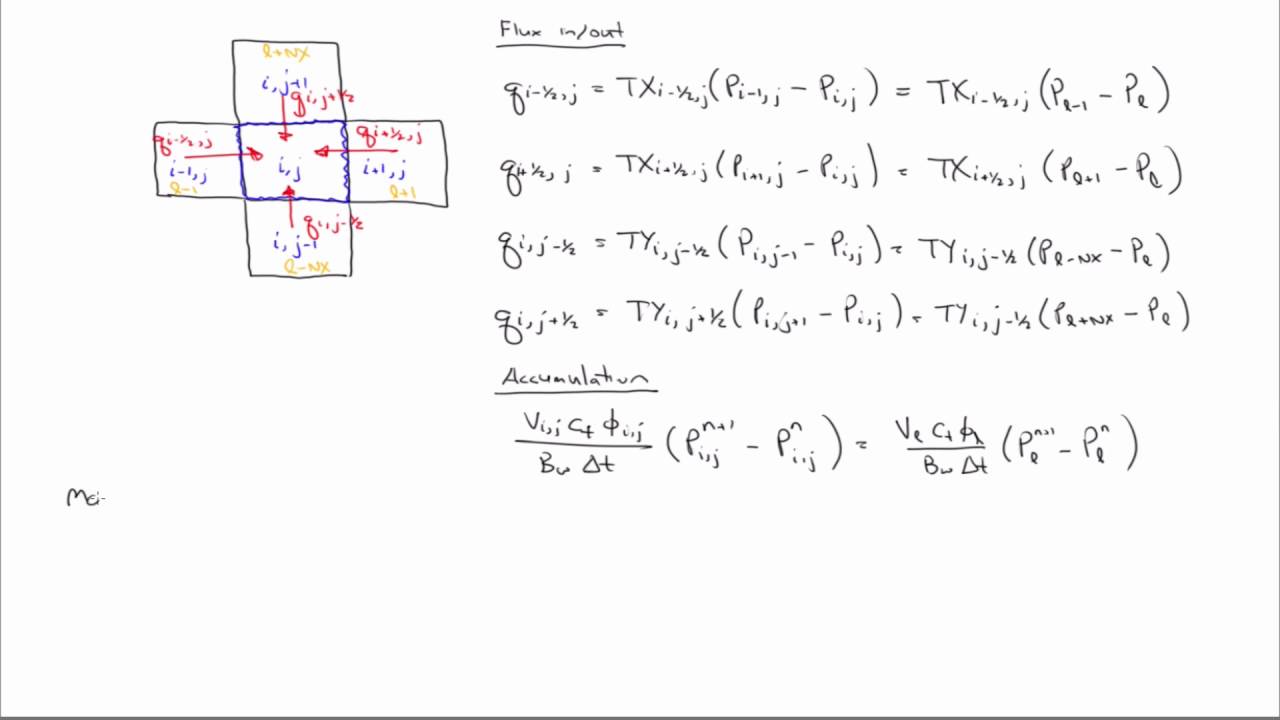 Flux in/out
l+NX
i, j+1
q i, j+½
q i-½, j
i-1, j
l-1
i, j
q i+½, j
i+1, j
l+1
q i, j-½
i, j-1
l-NX
q i-½, j = TX i-½, j (P i-1, j - P i, j) = TX i-½, j (P l-1 - P l)
q i+½, j = TX i+½, j (P i+1, j - P i, j) = TX i+½, j (P l+1 - P l)
q i, j-½ = TY i, j-½ (P i, j-1 - P i, j) = TY i, j-½ (P l-NX - P l)
q i, j+½ = TY i, j+½ (P i, j+1 - P i, j) = TY i, j-½ (P l+NX - P l)
Accumulation
V i,j c t ϕ i,j / B w Δt (P i,j n+1 - P i,j n) = V l c t ϕ l / B w Δt (P l n+1 - P l n)